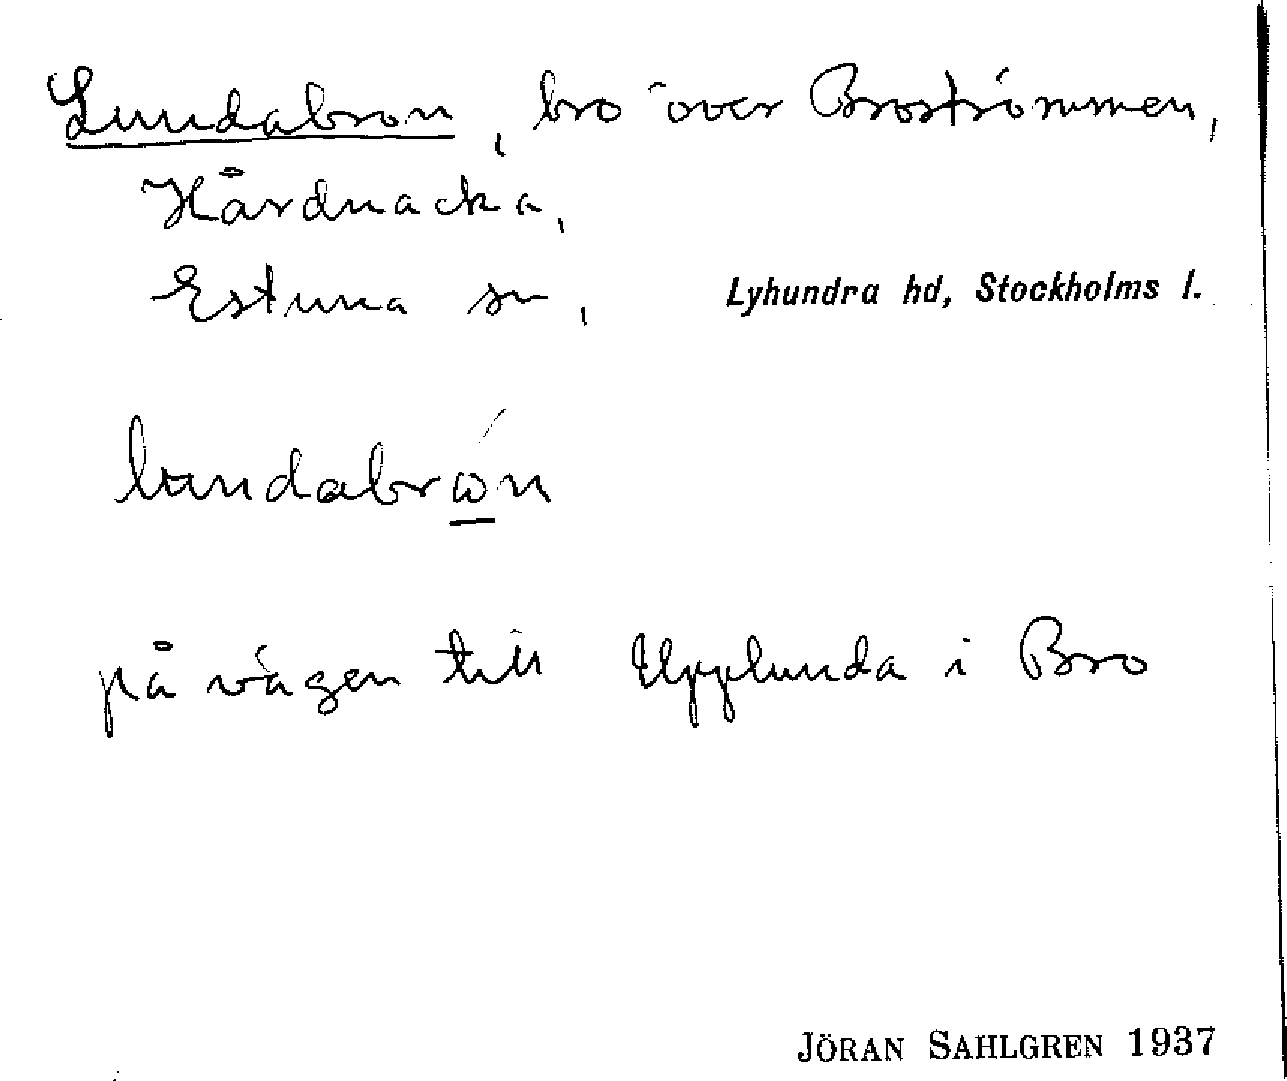 Lundabron, bro över Broströmmen,
Hårdnacka,
Estuna sn, Lyhundra hd, Stockholms l.
lundabrωn
på vägen till Upplunda i Bro
JÖRAN SAHLGREN 1937